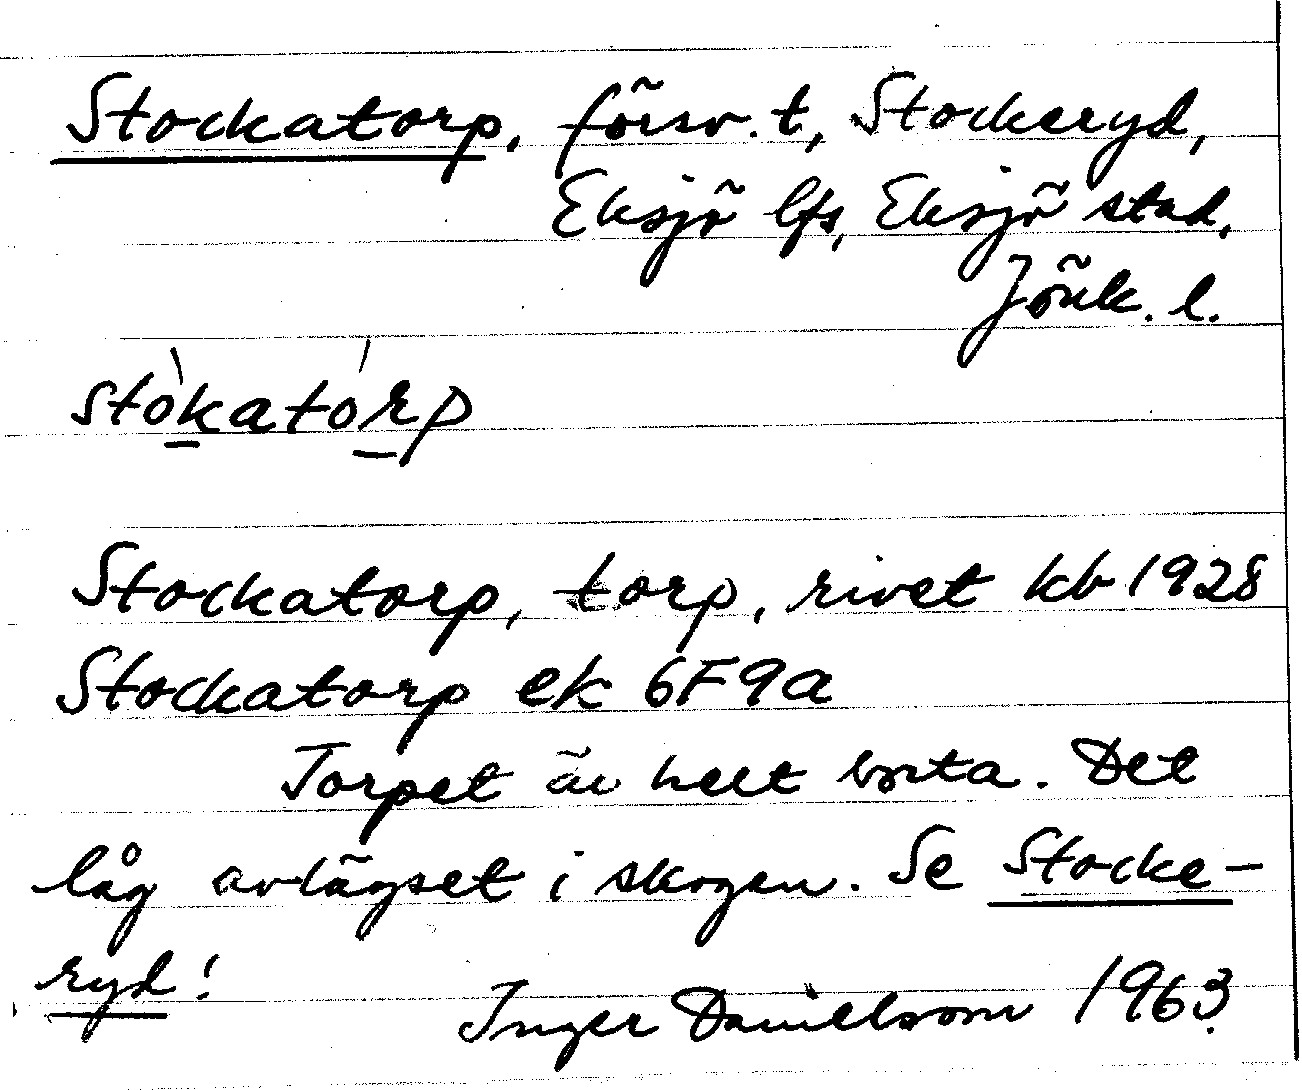 Stockatorp, försv. t, Stockeryd,
Eksjö lfs, Eksjö stad,
Jönk. l.
stòkatórp
Stockatorp, torp, rivet kb 1928
Stockatorp ek 6F9a
Torpet är helt borta. Det
låg avlägset i skogen. Se Stocke-
ryd!
Inger Danielsson 1963